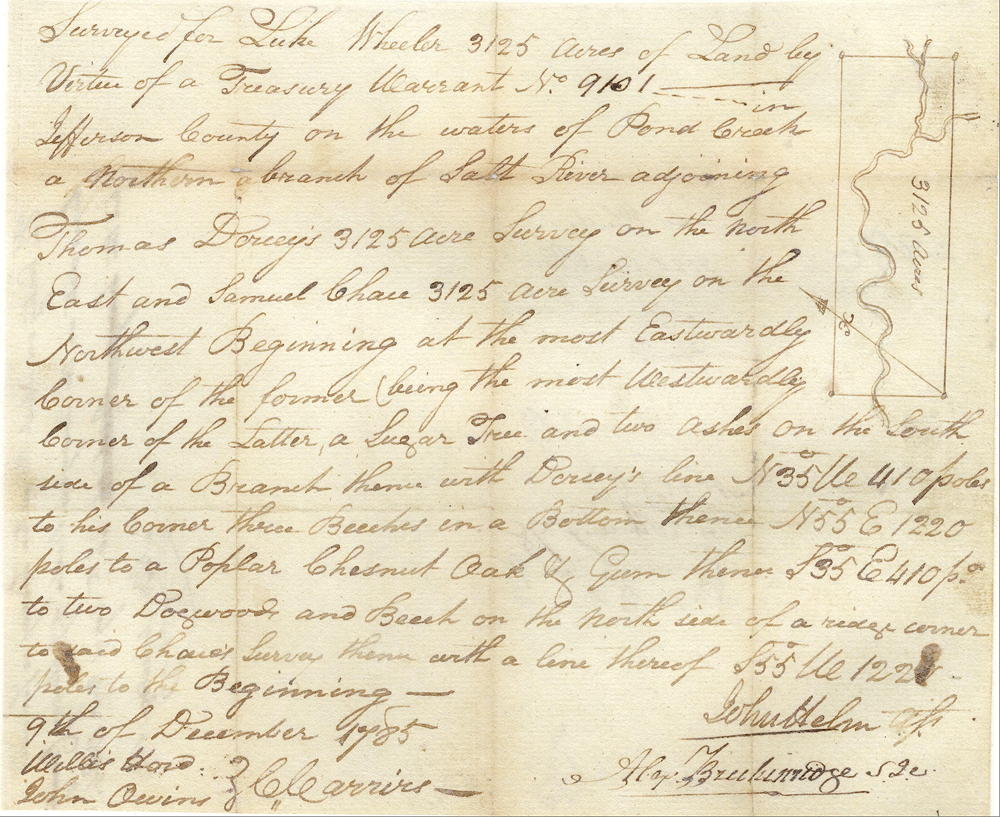 Surveyed for Luke Wheeler 3125 Acres of Land by
Virtue of a Treasury Warrant No. 9101 in
Jefferson County on the waters of Pond Creek
a Northern branch of Salt River adjoining
Thomas Dorsey's 3125 Acre Survey on the North
East and Samuel Chace 3125 Acre Survey on the
Northwest Beginning at the most Eastwardly
Corner of the former (being the most Westwardly
Corner of the Latter, a Sugar Tree and two Ashes on the South
side of a Branch thence with Dorsey's line N35°W 410 poles
to his Corner three Beeches in a Bottom thence N55°E 1220
poles to a Poplar Chesnut Oak & Gum thence S35°E 410 po
to two Dogwoods and Beech on the North side of a ridge corner
to said Chace's Survey thence with a line thereof S55°W 1220
poles to the Beginning —
9th of December 1785
John Helm
Willis Hord
John Owins } C. Carriers —
Alex. Breckinridge S.J.C.
3125 Acres